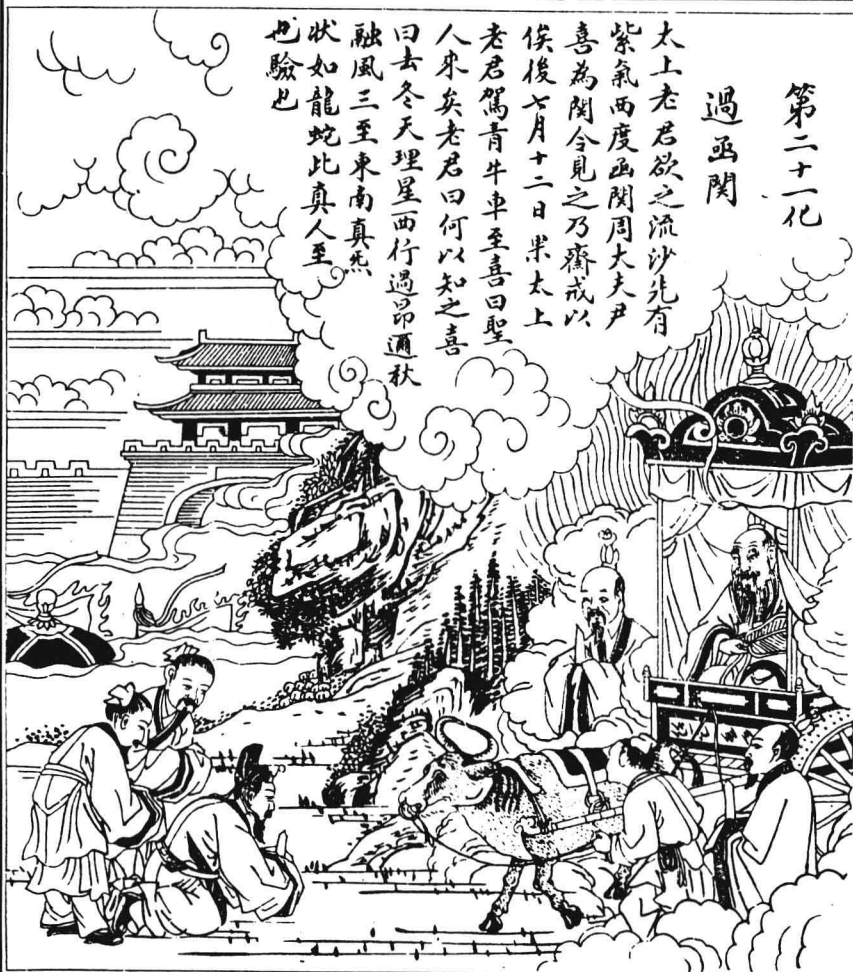 第二十一化
過函関
太上老君欲之流沙先有
紫氣西度函関周大夫尹
喜為関令見之乃齋戒以
俟後七月十二日果太上
老君駕青牛車至喜曰聖
人來矣老君曰何以知之喜
曰去冬天理星西行過昴邇秋
融風三至東南真炁
狀如龍蛇比真人至
也驗也